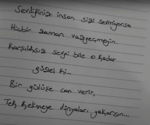 Sevdiğiniz insan sizi sevmiyorsa
Hiçbir zaman vazgeçmeyin
Karşılıksız sevgi bile o kadar
güzel ki
Bir gülüşe can verir,
Tek kelimeye dünyaları yakarsın